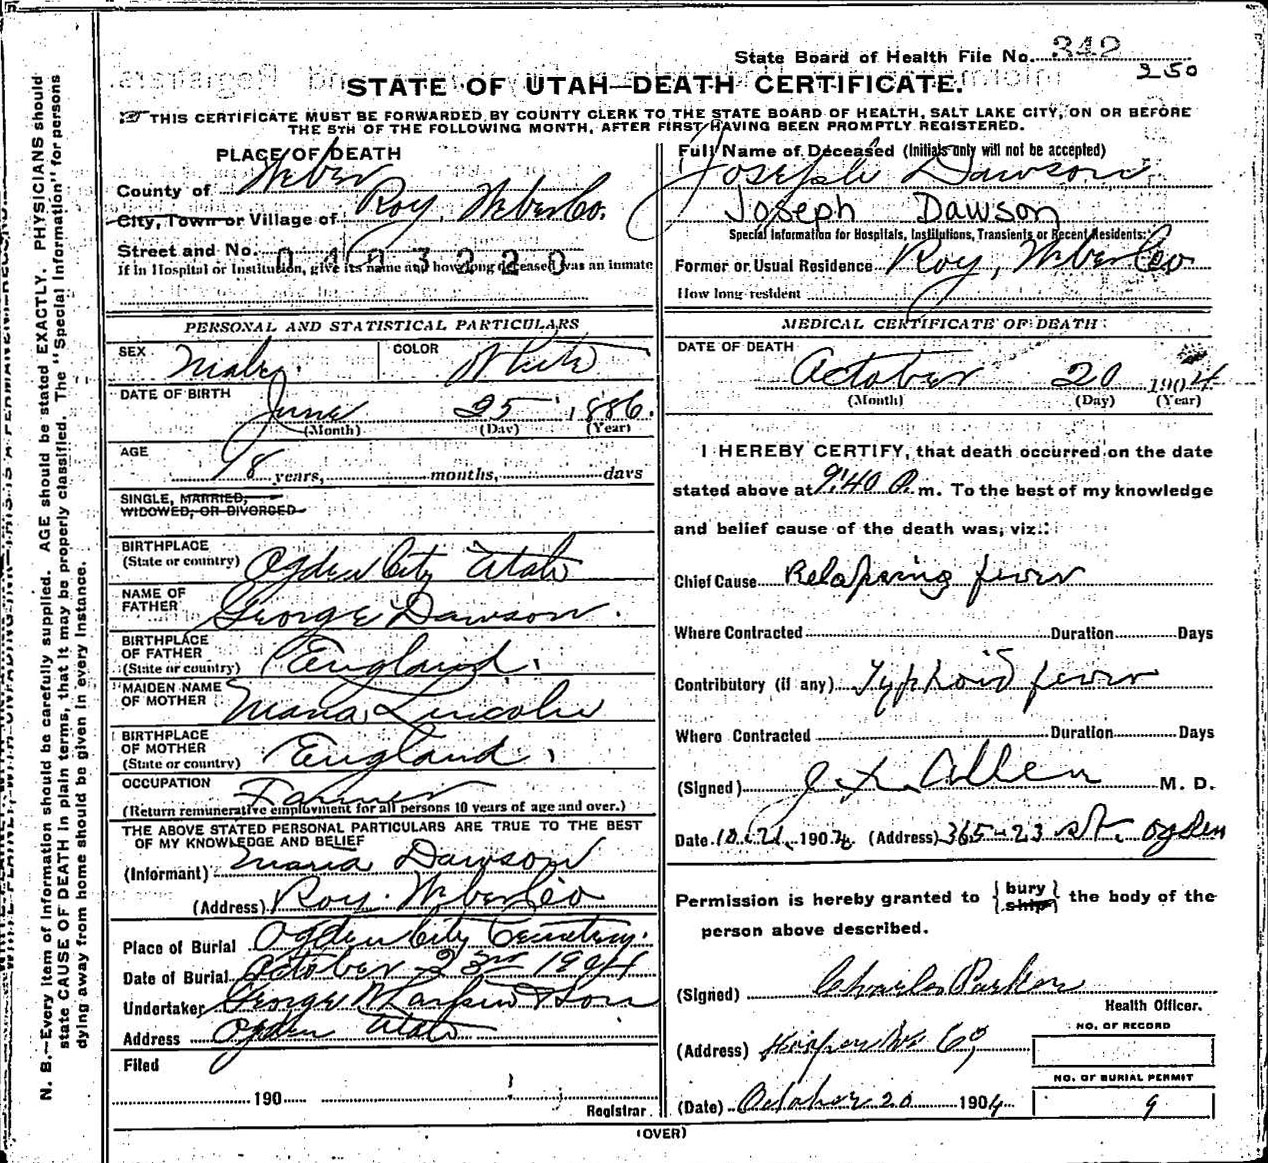 State Board of Health File No. 342
250
STATE OF UTAH—DEATH CERTIFICATE.
THIS CERTIFICATE MUST BE FORWARDED BY COUNTY CLERK TO THE STATE BOARD OF HEALTH, SALT LAKE CITY, ON OR BEFORE
THE 5TH OF THE FOLLOWING MONTH, AFTER FIRST HAVING BEEN PROMPTLY REGISTERED.
PLACE OF DEATH
County of Weber
City, Town or Village of Roy, Weber Co.
Street and No. 0403220
If in Hospital or Institution, give its name and how long deceased was an inmate
Full Name of Deceased (Initials only will not be accepted)
Joseph Dawson
Joseph Dawson
Special Information for Hospitals, Institutions, Transients or Recent Residents:
Former or Usual Residence Roy, Weber Co
How long resident
PERSONAL AND STATISTICAL PARTICULARS
SEX Male.
COLOR White
DATE OF BIRTH
June 25 1886.
(Month) (Day) (Year)
AGE
18 years, months, days
SINGLE, MARRIED,
WIDOWED, OR DIVORCED
BIRTHPLACE
(State or country) Ogden City Utah
NAME OF
FATHER George Dawson.
BIRTHPLACE
OF FATHER
(State or country) England.
MAIDEN NAME
OF MOTHER Maria Lincoln
BIRTHPLACE
OF MOTHER
(State or country) England.
OCCUPATION
Farmer
(Return remunerative employment for all persons 10 years of age and over.)
THE ABOVE STATED PERSONAL PARTICULARS ARE TRUE TO THE BEST
OF MY KNOWLEDGE AND BELIEF
(Informant) Maria Dawson
(Address) Roy. Weber Co
Place of Burial Ogden City Cemetery.
Date of Burial October 23rd 1904
Undertaker George W Larkin & Son
Address Ogden Utah
Filed
190
Registrar.
MEDICAL CERTIFICATE OF DEATH
DATE OF DEATH
October 20 1904
(Month) (Day) (Year)
I HEREBY CERTIFY, that death occurred on the date
stated above at 9:40 P. m. To the best of my knowledge
and belief cause of the death was, viz.:
Chief Cause Relapsing fever
Where Contracted Duration Days
Contributory (if any) Typhoid fever
Where Contracted Duration Days
(Signed) Allen M. D.
Date 10.21. 1904 (Address) 365-23 St. Ogden
Permission is hereby granted to {bury
ship} the body of the
person above described.
(Signed) Charles Parker
Health Officer.
(Address)
NO. OF RECORD
NO. OF BURIAL PERMIT
9
(Date) October 20 1904
(OVER)
N. B.—Every item of information should be carefully supplied. AGE should be stated EXACTLY. PHYSICIANS should
state CAUSE OF DEATH in plain terms, that it may be properly classified. The "Special Information" for persons
dying away from home should be given in every instance.